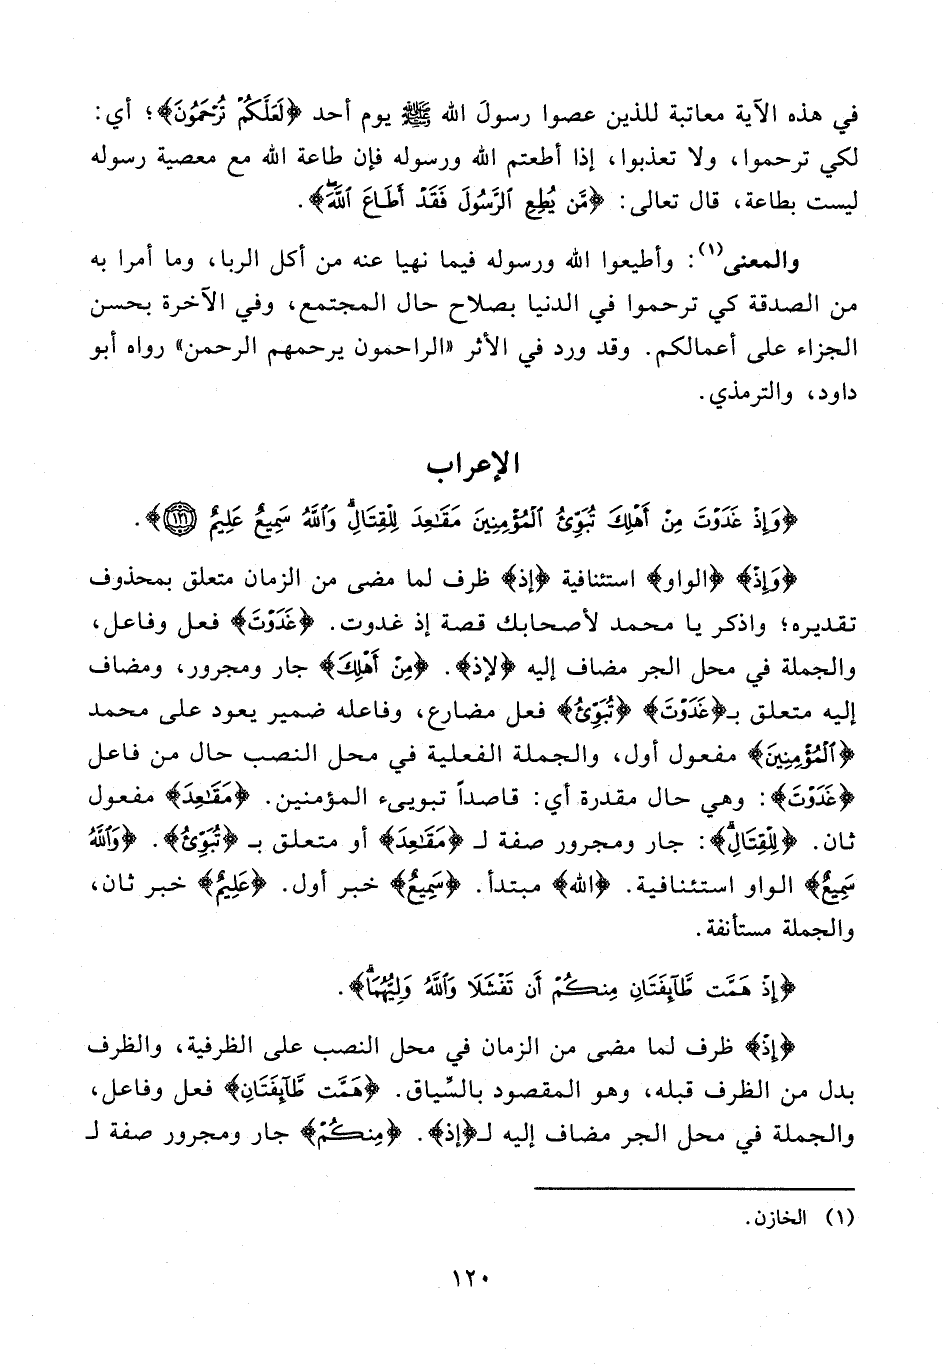 في هذه الآية معاتبة للذين عصوا رسولَ الله ﷺ يوم أحد ﴿لَعَلَّكُمْ تُرْحَمُونَ﴾؛ أي:
لكي ترحموا، ولا تعذبوا، إذا أطعتم الله ورسوله فإن طاعة الله مع معصية رسوله
ليست بطاعة، قال تعالى: ﴿مَّن يُطِعِ ٱلرَّسُولَ فَقَدْ أَطَاعَ ٱللَّهَۖ﴾.
والمعنى(١): وأطيعوا الله ورسوله فيما نهيا عنه من أكل الربا، وما أمرا به
من الصدقة كي ترحموا في الدنيا بصلاح حال المجتمع، وفي الآخرة بحسن
الجزاء على أعمالكم. وقد ورد في الأثر «الراحمون يرحمهم الرحمن» رواه أبو
داود، والترمذي.
الإعراب
﴿وَإِذْ غَدَوْتَ مِنْ أَهْلِكَ تُبَوِّئُ ٱلْمُؤْمِنِينَ مَقَٰعِدَ لِلْقِتَالِۗ وَٱللَّهُ سَمِيعٌ عَلِيمٌ ١٢١﴾.
﴿وَإِذْ﴾ ﴿الواو﴾ استئنافية ﴿إذ﴾ ظرف لما مضى من الزمان متعلق بمحذوف
تقديره؛ واذكر يا محمد لأصحابك قصة إذ غدوت. ﴿غَدَوْتَ﴾ فعل وفاعل،
والجملة في محل الجر مضاف إليه ﴿لإذ﴾. ﴿مِنْ أَهْلِكَ﴾ جار ومجرور، ومضاف
إليه متعلق بـ﴿غَدَوْتَ﴾ ﴿تُبَوِّئُ﴾ فعل مضارع، وفاعله ضمير يعود على محمد
﴿ٱلْمُؤْمِنِينَ﴾ مفعول أول، والجملة الفعلية في محل النصب حال من فاعل
﴿غَدَوْتَ﴾: وهي حال مقدرة أي: قاصداً تبويىء المؤمنين. ﴿مَقَٰعِدَ﴾ مفعول
ثان. ﴿لِلْقِتَالِۗ﴾: جار ومجرور صفة لـ ﴿مَقَٰعِدَ﴾ أو متعلق بـ ﴿تُبَوِّئُ﴾. ﴿وَٱللَّهُ
سَمِيعٌ﴾ الواو استئنافية. ﴿الله﴾ مبتدأ. ﴿سَمِيعٌ﴾ خبر أول. ﴿عَلِيمٌ﴾ خبر ثان،
والجملة مستأنفة.
﴿إِذْ هَمَّت طَّآئِفَتَانِ مِنكُمْ أَن تَفْشَلَا وَٱللَّهُ وَلِيُّهُمَاۗ﴾.
﴿إِذْ﴾ ظرف لما مضى من الزمان في محل النصب على الظرفية، والظرف
بدل من الظرف قبله، وهو المقصود بالسِّياق. ﴿هَمَّت طَّآئِفَتَانِ﴾ فعل وفاعل،
والجملة في محل الجر مضاف إليه لـ﴿إذ﴾. ﴿مِنكُمْ﴾ جار ومجرور صفة لـ
(١) الخازن.
١٢٠